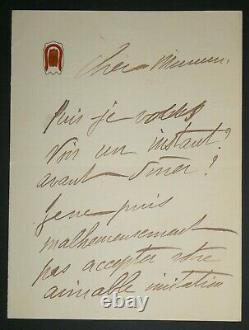 Cher
Puis-je vous
voir un instant?
avant dîner?
Je ne puis
malheureusement
pas accepter votre
aimable invitation
© 123RF